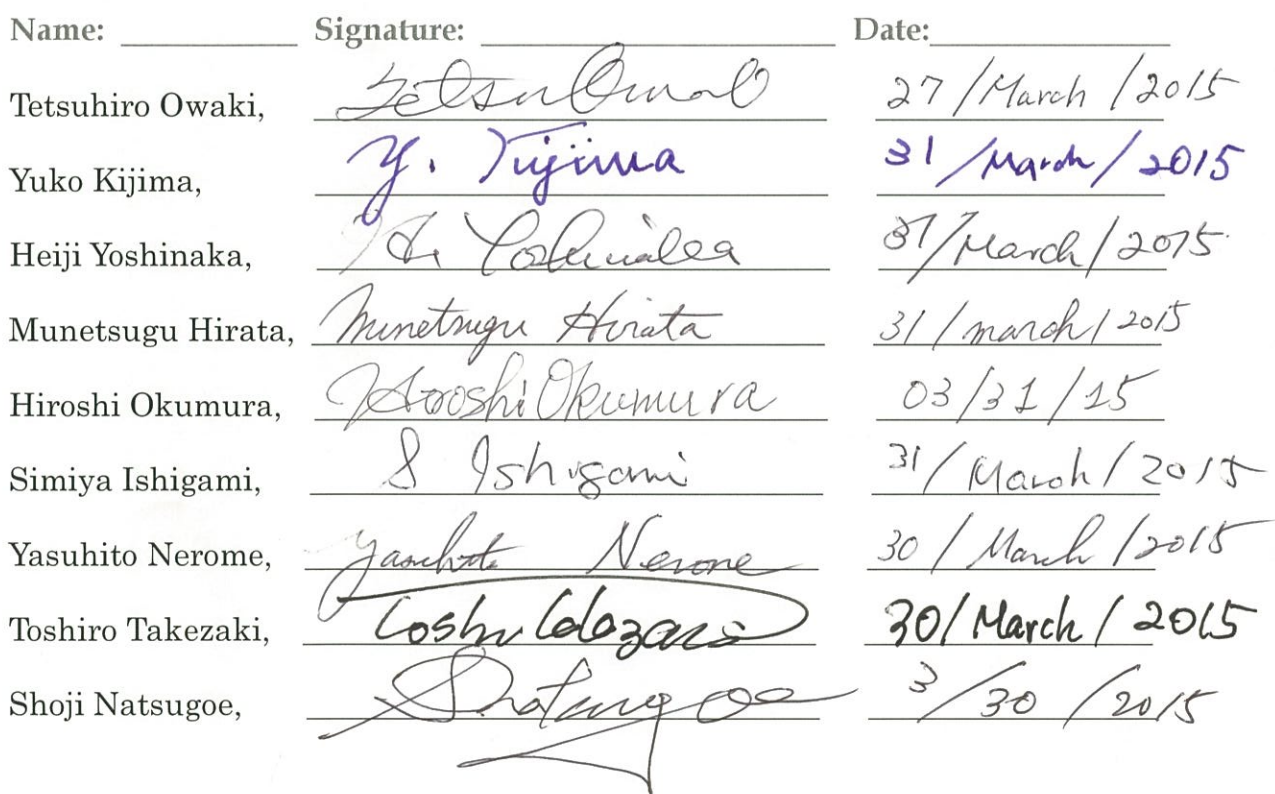 Name: Signature: Date:
Tetsuhiro Owaki, 27/March/2015
Yuko Kijima, Y. Kijima 31/March/2015
Heiji Yoshinaka, H. Yoshinaka 31/March/2015
Munetsugu Hirata, Munetsugu Hirata 31/march/2015
Hiroshi Okumura, Hiroshi Okumura 03/31/15
Simiya Ishigami, S Ishigami 31/March/2015
Yasuhito Nerome, Yasuhito Nerome 30/March/2015
Toshiro Takezaki, 30/March/2015
Shoji Natsugoe, 3/30/2015